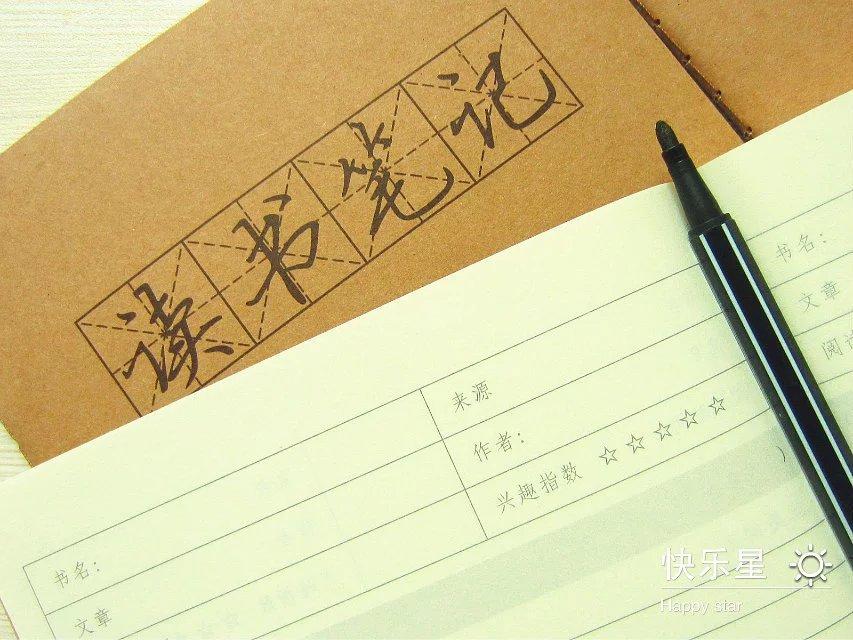 读书笔记
来源
作者：
兴趣指数 ☆☆☆☆☆
书名：
文章
书名：
文章
快乐星
Happy star